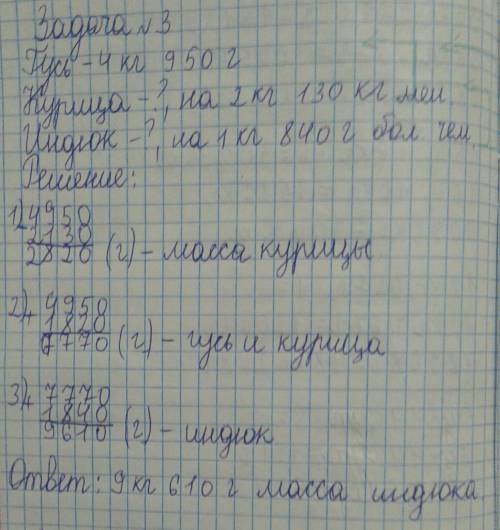 Задача №3
Гусь - 4 кг 950 г
Курица - ?, на 2 кг 130 кг мен
Индюк - ?, на 1 кг 840 г бол. чем
Решение:
1) 4950
2130
2820 (г) - масса курицы
2) 4950
1820
7770 (г) - гусь и курица
3) 7770
1840
9610 (г) - индюк
Ответ: 9 кг 610 г масса индюка